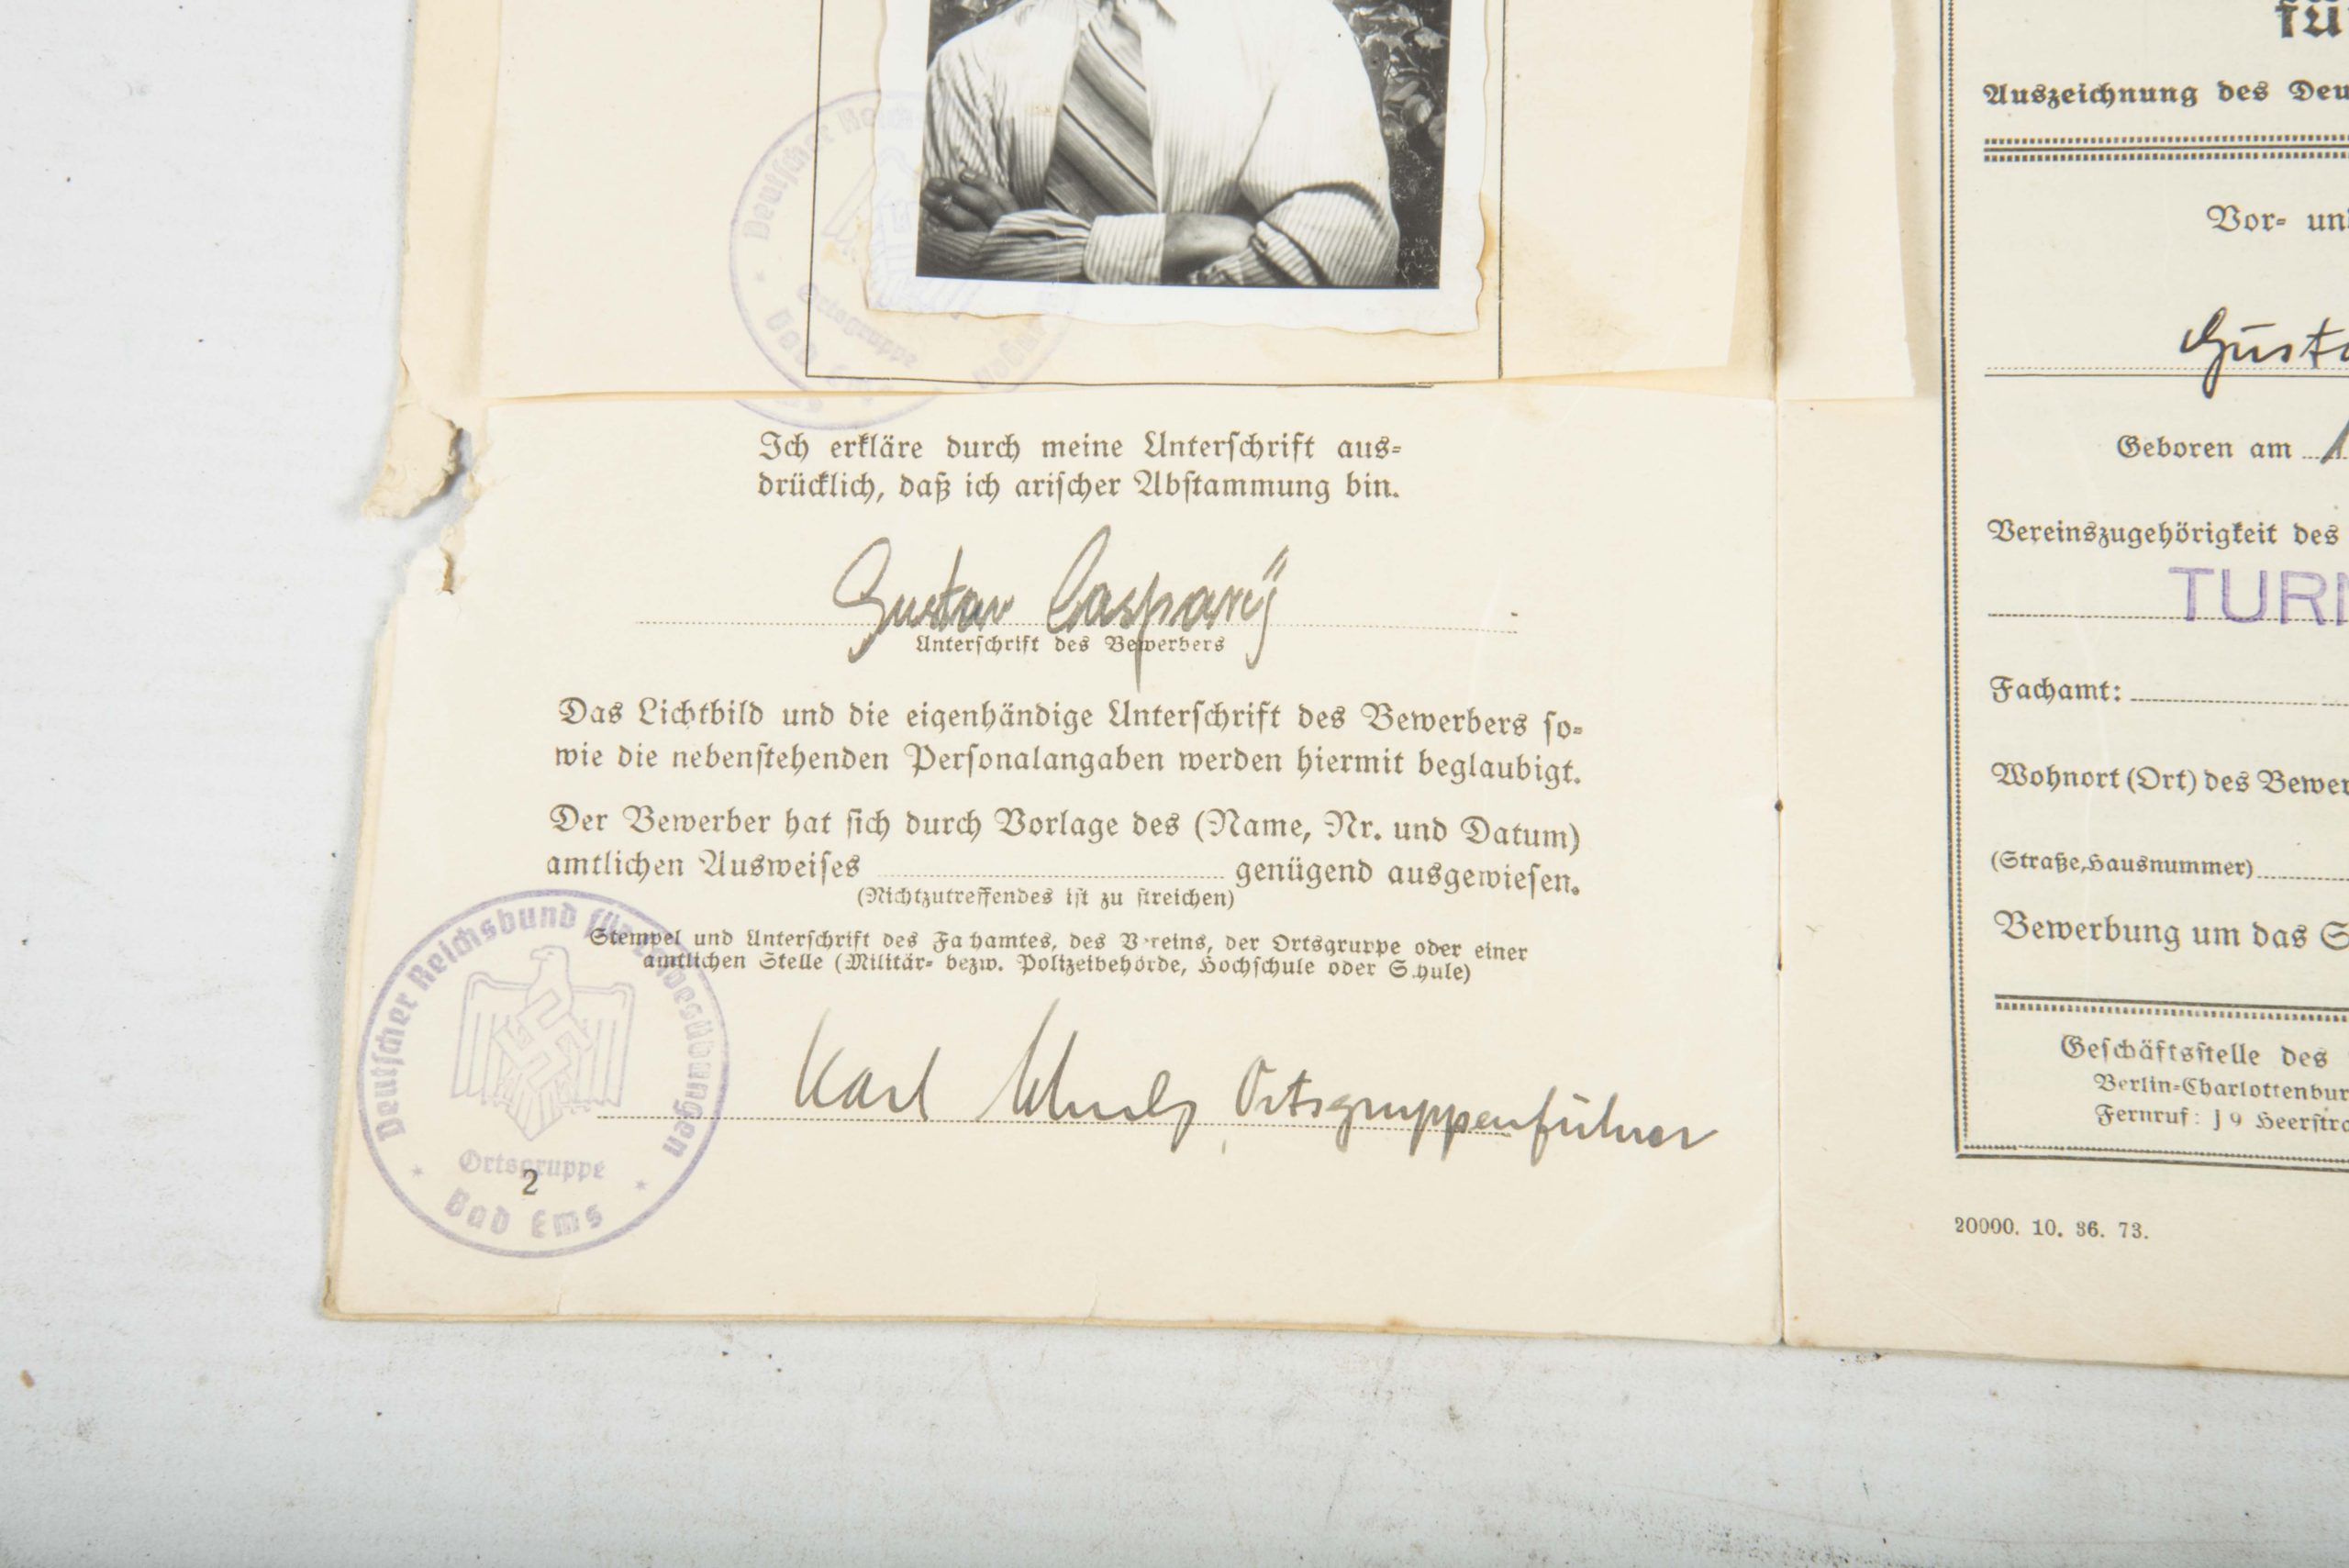 Deutscher Reich
Ortsgruppe
Bad Ems
Ich erkläre durch meine Unterschrift aus-
drücklich, daß ich arischer Abstammung bin.
Gustav Caspary
Unterschrift des Bewerbers
Das Lichtbild und die eigenhändige Unterschrift des Bewerbers so-
wie die nebenstehenden Personalangaben werden hiermit beglaubigt.
Der Bewerber hat sich durch Vorlage des (Name, Nr. und Datum)
amtlichen Ausweises genügend ausgewiesen.
(Nichtzutreffendes ist zu streichen)
Stempel und Unterschrift des Fachamtes, des Vereins, der Ortsgruppe oder einer
amtlichen Stelle (Militär- bezw. Polizeibehörde, Hochschule oder Schule)
Karl Ortsgruppenführer
Deutscher Reichsbund für Leibesübungen
Ortsgruppe
2
Bad Ems
fü
Auszeichnung des Deu
Vor- un
Gusta
Geboren am 1
Vereinszugehörigkeit des
TURN
Fachamt:
Wohnort (Ort) des Bewer
(Straße, Hausnummer)
Bewerbung um das S
Geschäftsstelle des
Berlin-Charlottenbur
Fernruf: J 9 Heerstra
20000. 10. 36. 73.